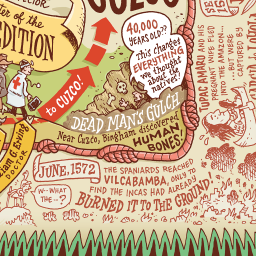 CUZCO
ter of the
EDITION
to CUZCO!
40,000
YEARS OLD??
This changes
EVERYTHING
we thought
about the
natives!
DEAD MAN'S GULCH
Near Cuzco, Bingham discovered
HUMAN
BONES
DOCTOR
TUPAC AMARU AND HIS
PREGNANT WIFE FLED
INTO THE AMAZON...
...BUT WERE
CAPTURED BY
JUNE, 1572
THE SPANIARDS REACHED
VILCABAMBA, ONLY TO
FIND THE INCAS HAD ALREADY
BURNED IT TO THE GROUND
W-WHAT
THE--?